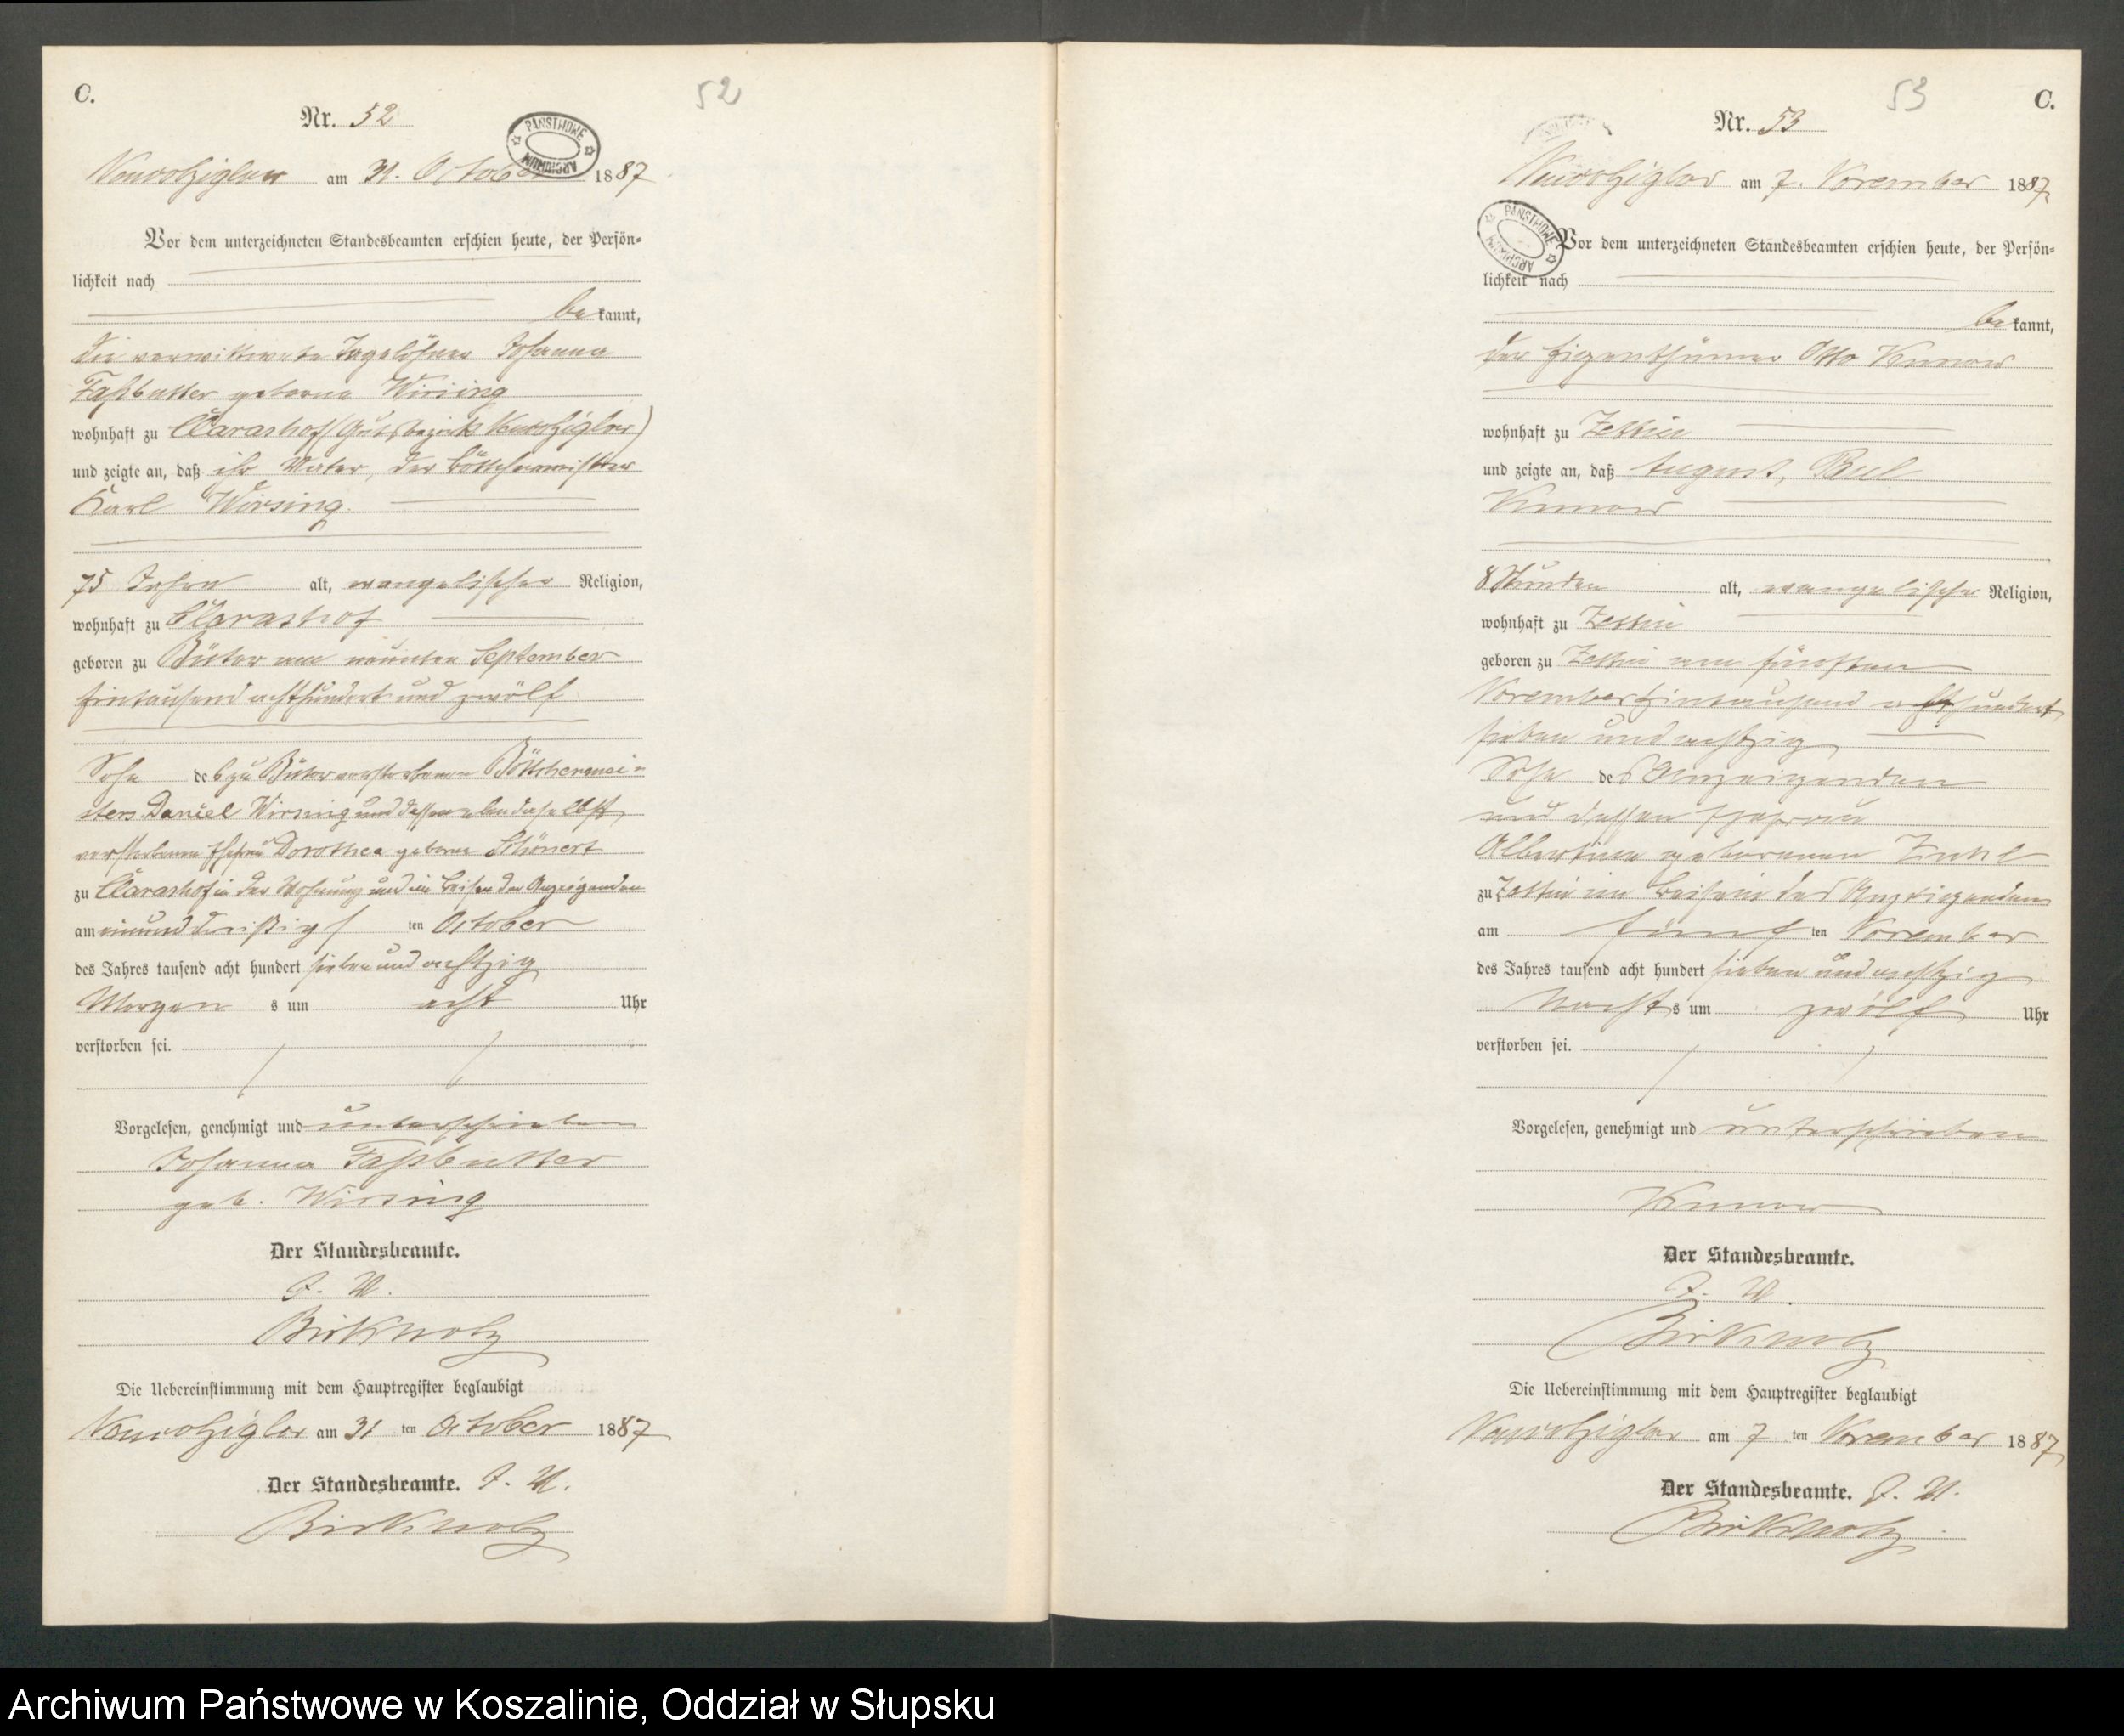 C.
52
Nr. 52
PAŃSTWOWE ARCHIWUM
Neuwolziglow am 31. October 1887
Vor dem unterzeichneten Standesbeamten erschien heute, der Persön=
lichkeit nach
be kannt,
die verwittwete Tagelöhner Johanna
Faßbutter geborne Wirsing
wohnhaft zu Clarashof (Gutsbezirk Neuwolziglow)
und zeigte an, daß ihr Vater, der Böttchermeister
Karl Wirsing.
75 Jahre alt, evangelischer Religion,
wohnhaft zu Clarashof
geboren zu Bütow am neunten September
Eintausend achthundert und zwölf
Sohn des zu Bütow verstorbenen Böttchermei=
sters Daniel Wirsing und dessen ebendaselbst
verstorbenen Ehefrau Dorothea geborne Schönert
zu Clarashof in der Wohnung und im Beisein der Anzeigenden
am einunddreißigs ten October
des Jahres tausend acht hundert sieben und achtzig
Morgen s um acht Uhr
verstorben sei.
Vorgelesen, genehmigt und unterschrieben
Johanna Faßbutter
geb. Wirsing
Der Standesbeamte.
J. V.
Birkholz
Die Uebereinstimmung mit dem Hauptregister beglaubigt
Neuwolziglow am 31 ten October 1887
Der Standesbeamte. J. V.
Birkholz
53
C.
Nr. 53
Neuwolziglow am 7. November 1887
PAŃSTWOWE ARCHIWUM
Vor dem unterzeichneten Standesbeamten erschien heute, der Persön=
lichkeit nach
be kannt,
der Eigenthümer Otto Kunow
wohnhaft zu Zettin
und zeigte an, daß August,
Kunow
8 Stunden alt, evangelischer Religion,
wohnhaft zu Zettin
geboren zu Zettin am fünften
November Eintausend achthundert
sieben und achtzig
Sohn des Anzeigenden
und dessen Ehefrau
Albertine geborenen
zu Zettin im Beisein des Anzeigenden
am fünf ten November
des Jahres tausend acht hundert sieben und achtzig
Nacht s um zwölf Uhr
verstorben sei.
Vorgelesen, genehmigt und unterschrieben
Kunow
Der Standesbeamte.
J. V.
Birkholz
Die Uebereinstimmung mit dem Hauptregister beglaubigt
Neuwolziglow am 7 ten November 1887
Der Standesbeamte. J. V.
Birkholz
Archiwum Państwowe w Koszalinie, Oddział w Słupsku